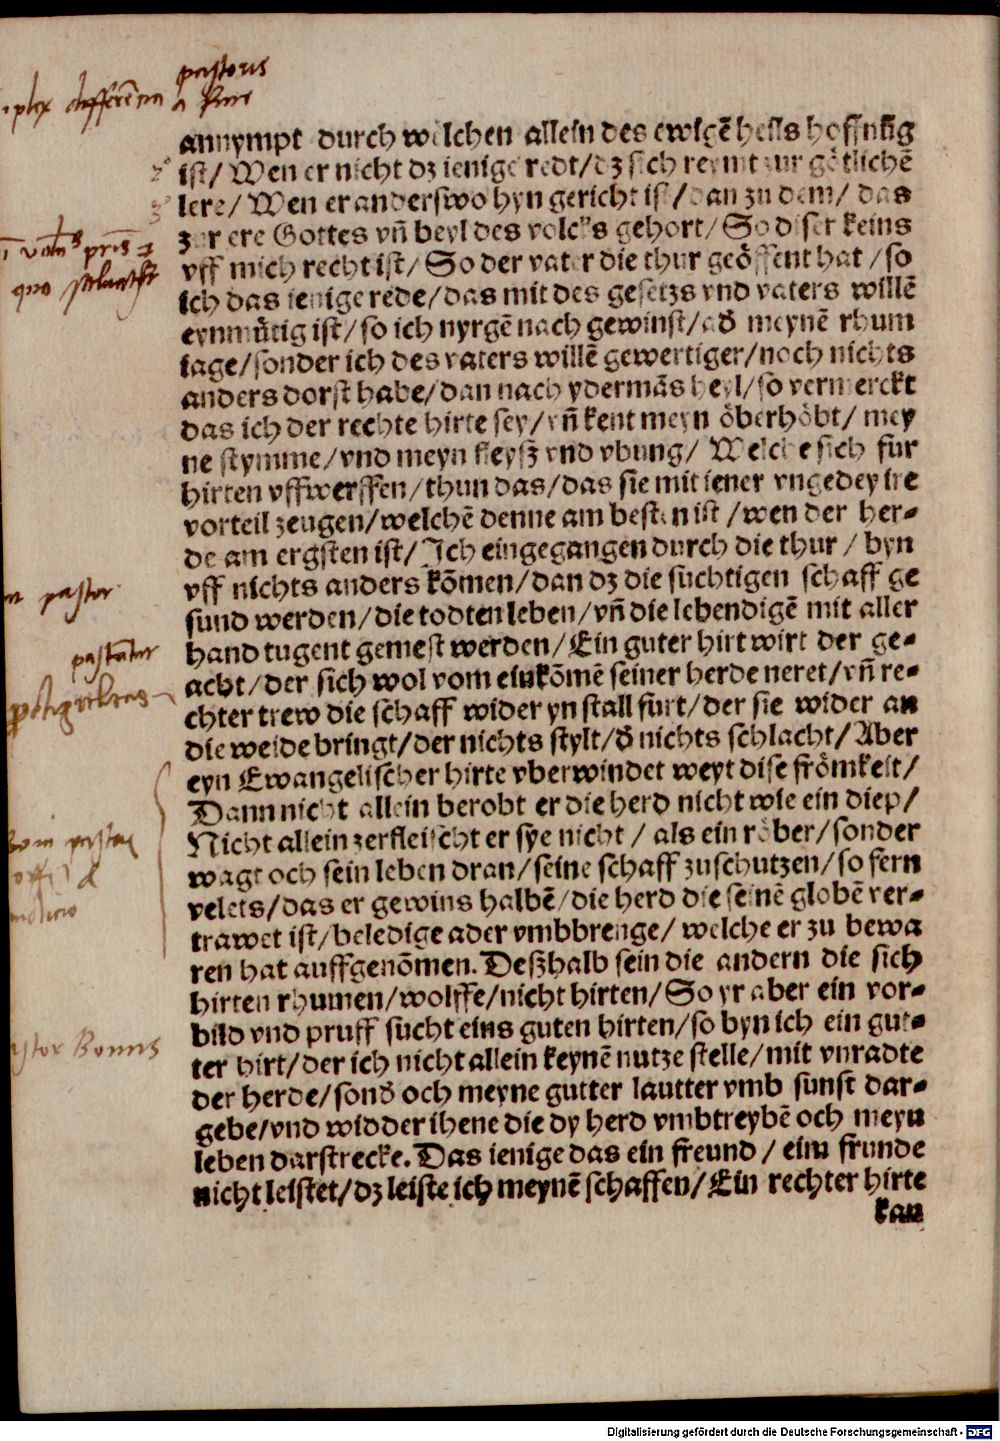 pastoris
differen a fure
annympt durch welchen allein des ewigē heils hoffnūg
ist/ Wen er nicht dz ienige redt/ dz sich reymt zur götlichē
lere/ Wen er anderswo hyn gericht ist/ dan zu dem/ das
zur ere Gottes vñ heyl des volcks gehort/ So diser keins
vff mich recht ist/ So der vater die thur geöffent hat /so
ich das ienige rede/das mit des gesetzs vnd vaters willē
eynmütig ist/so ich nyrgē nach gewinst/ad̄ meynē rhum
iage/sonder ich des vaters willē gewertiger/noch nichts
anders dorst habe/dan nach ydermās heyl/so vermerckt
das ich der rechte hirte sey/vñ kent meyn öberhöbt/ mey
ne stymme/vnd meyn fleysz vnd vbung/ Welche sich fur
hirten vffwerffen/thun das/das sie mit iener vngedey ire
vorteil zeugen/welchē denne am besten ist /wen der her-
de am ergsten ist/ Ich eingegangen durch die thur / byn
vff nichts anders kōmen/dan dz die suchtigen schaff ge
sund werden/die todten leben/vñ die lebendigē mit aller
hand tugent gemest werden/Ein guter hirt wirt der ge-
acht/der sich wol vom einkōmē seiner herde neret/vñ re-
chter trew die schaff wider yn stall furt/der sie wider an
die weide bringt/der nichts stylt/d̄ nichts schlacht/Aber
eyn Ewangelischer hirte vberwindet weyt dise frömkeit/
Dann nicht allein berobt er die herd nicht wie ein diep/
Nicht allein zerfleischt er sye nicht / als ein röber/sonder
wagt och sein leben dran/seine schaff zuschutzen/so fern
velets/das er gewins halbē/die herd die seinē globē ver-
trawet ist/beledige ader vmbbrenge/ welche er zu bewa
ren hat auffgenōmen. Deßhalb sein die andern die sich
hirten rhumen/wolffe/nicht hirten/So yr aber ein vor-
bild vnd pruff sucht eins guten hirten/so byn ich ein gut-
ter hirt/der ich nicht allein keynē nutze stelle/mit vnradte
der herde/sond̄ och meyne gutter lautter vmb sunst dar-
gebe/vnd widder ihene die dy herd vmbtreybē och meyn
leben darstrecke. Das ienige das ein freund / eim frunde
nicht leistet/dz leiste ich meynē schaffen/Ein rechter hirte
kan
pastor
Bonus
Digitalisierung gefördert durch die Deutsche Forschungsgemeinschaft - DFG